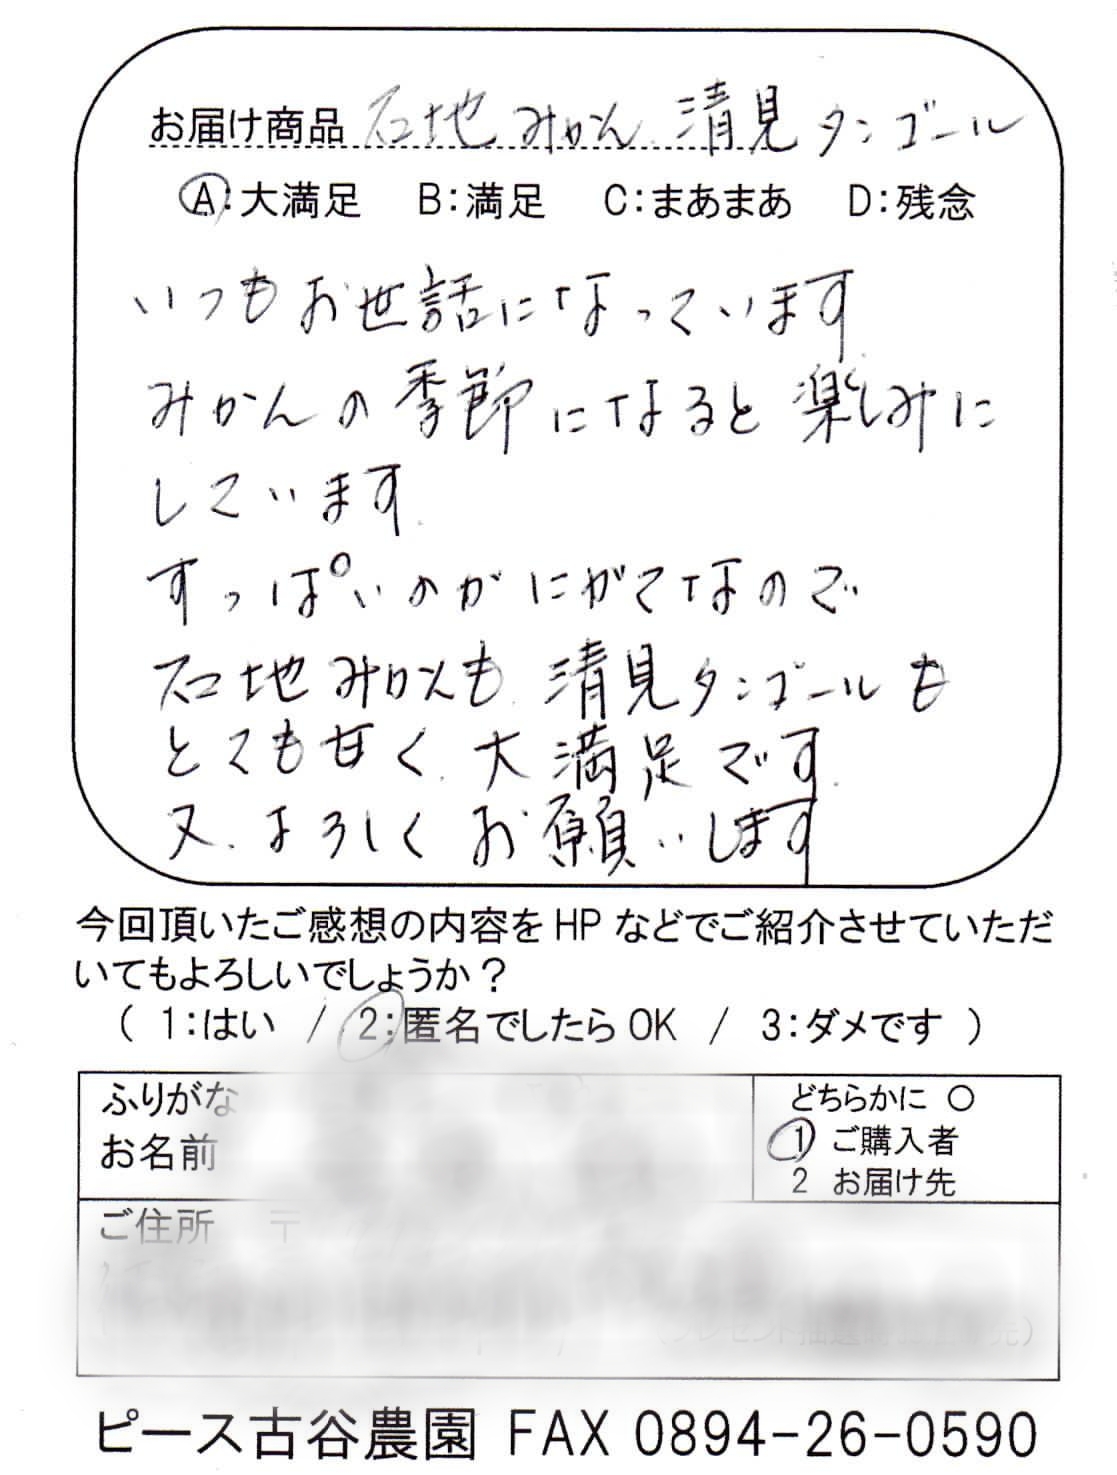 お届け商品 石地みかん、清見タンゴール
A:大満足 B:満足 C:まあまあ D:残念
いつもお世話になっています
みかんの季節になると楽しみに
しています。
すっぱいのがにがてなので
石地みかんも、清見タンゴールも
とても甘く、大満足です。
又、よろしくお願いします
今回頂いたご感想の内容をHPなどでご紹介させていただ
いてもよろしいでしょうか？
( 1:はい / 2:匿名でしたらOK / 3:ダメです )
ふりがな
お名前
どちらかに ○
1 ご購入者
2 お届け先
ご住所 〒
ピース古谷農園 FAX 0894-26-0590